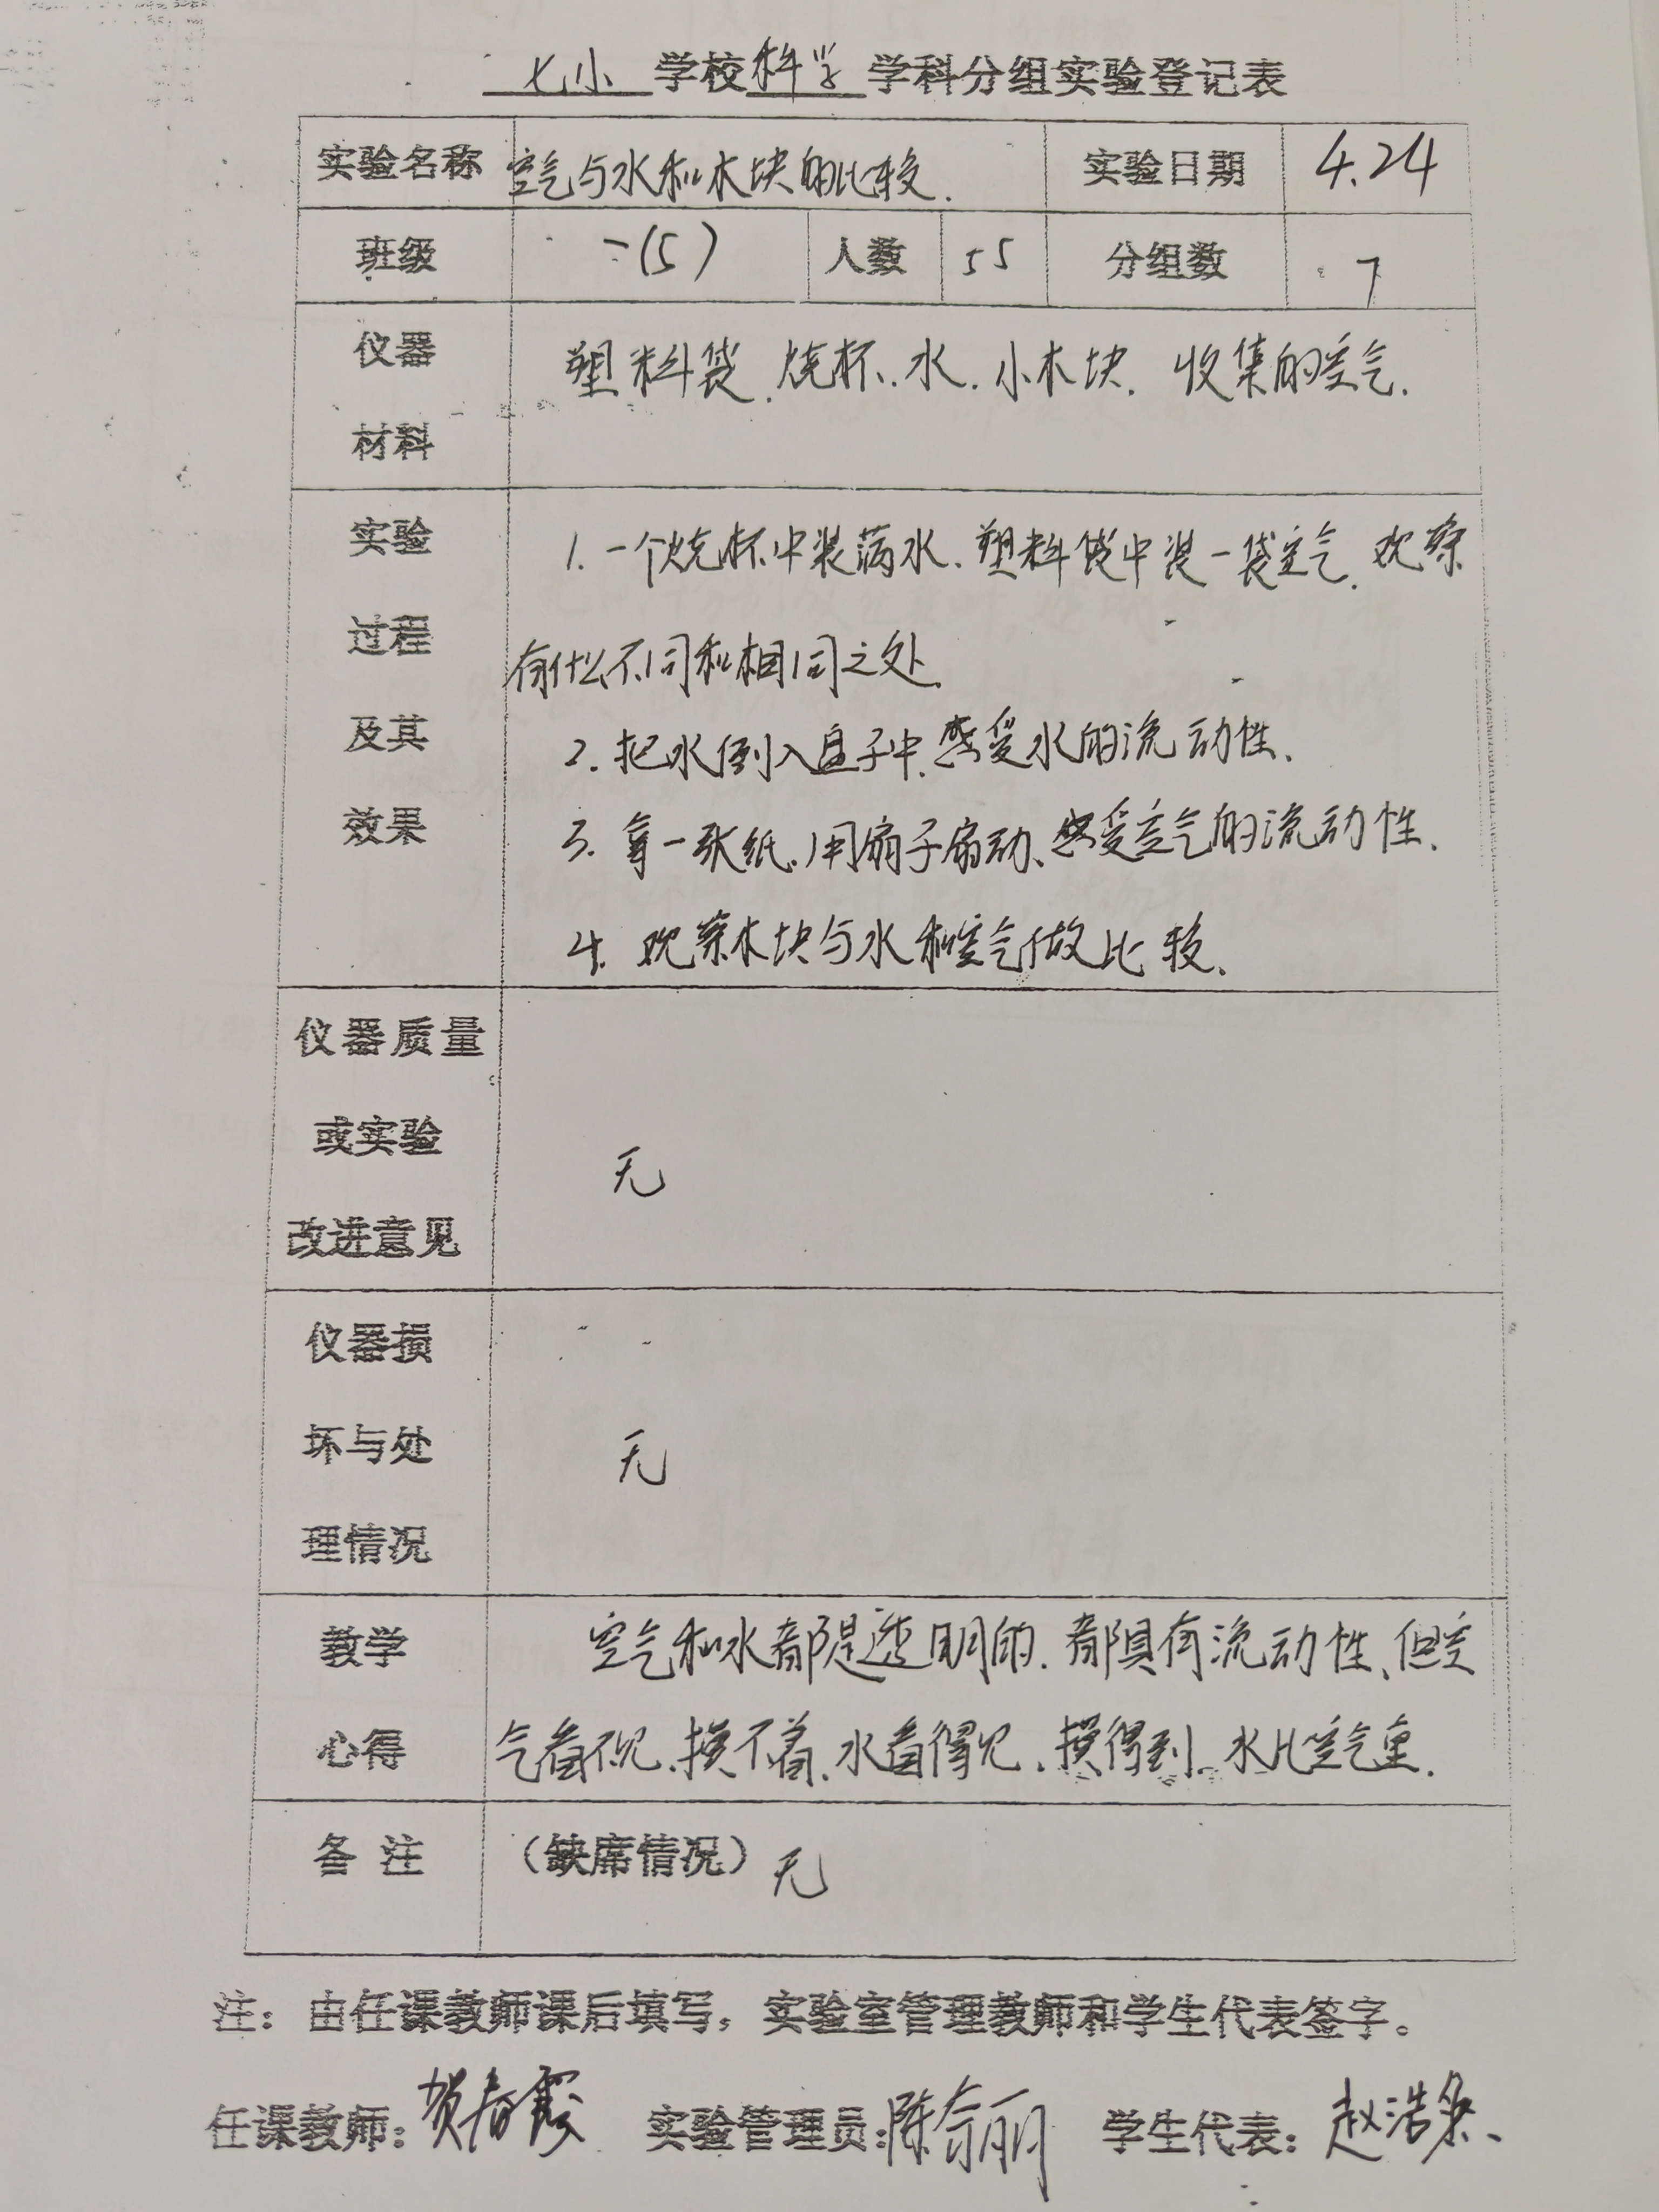 七小 学校科学学科分组实验登记表
实验名称 空气与水和木块的比较. 实验日期 4.24
班级 一(5) 人数 55 分组数 7
仪器 塑料袋.烧杯.水.小木块. 收集的空气.
材料
实验 1.一个烧杯中装满水.塑料袋中装一袋空气.观察
过程 有什么不同和相同之处.
及其 2.把水倒入盘子中.感受水的流动性.
效果 3.拿一张纸.用扇子扇动、感受空气的流动性.
4.观察木块与水和空气做比较.
仪器质量
或实验 无
改进意见
仪器损
坏与处 无
理情况
教学 空气和水都是透明的.都具有流动性、但空
心得 气看不见.摸不着.水看得见.摸得到.水比空气重.
备注 （缺席情况）无
注：由任课教师课后填写，实验室管理教师和学生代表签字。
任课教师：贺春霞 实验管理员：陈丽 学生代表：赵浩